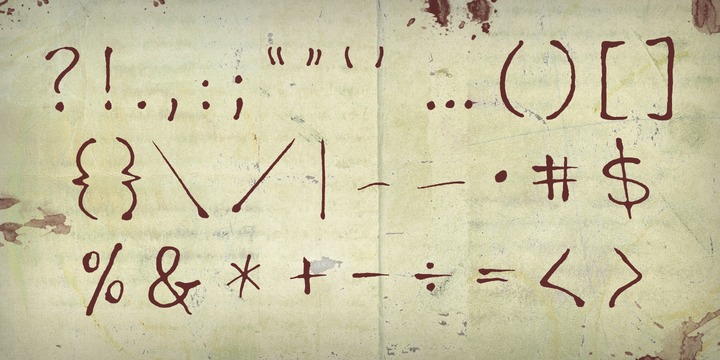 ?!.,:;“”‘’…()[]
{}\/|-–•#$
%&*+−÷=<>